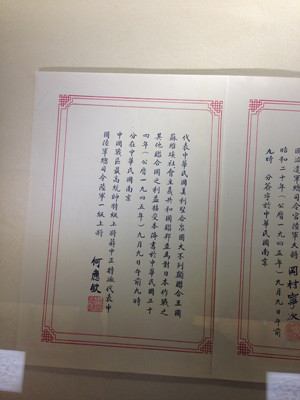 國派遣軍總司令官陸軍大將 岡村寧次
昭和二十年（公曆一九四五年）九月九日午前
九時 分簽字於中華民國南京
代表中華民國美利堅合眾國大不列顛聯合王國
蘇維埃社會主義共和國聯邦並為對日本作戰之
其他聯合國之利益接受本降書於中華民國三十
四年（公曆一九四五年）九月九日午前九時
分在中華民國南京
中國戰區最高統帥特級上將蔣中正特派代表中
國陸軍總司令陸軍一級上將
何應欽